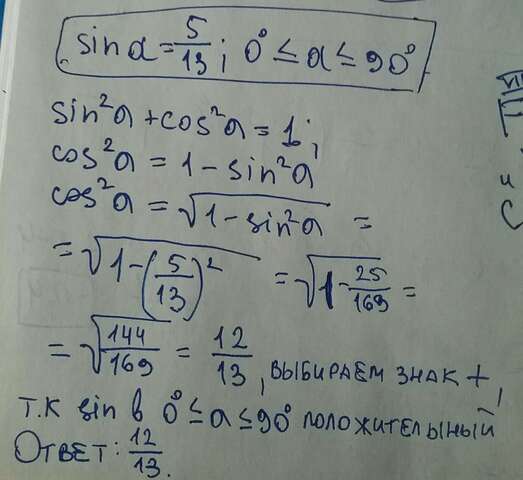 sin α = 5/13; 0° ≤ α ≤ 90°
sin²α + cos²α = 1;
cos²α = 1 - sin²α
cos²α = √(1 - sin²α) =
= √(1 - (5/13)²) = √(1 - 25/169) =
= √(144/169) = 12/13, ВЫБИРАЕМ ЗНАК +,
Т.К sin в 0° ≤ α ≤ 90° ПОЛОЖИТЕЛЬНЫЙ
ОТВЕТ: 12/13.